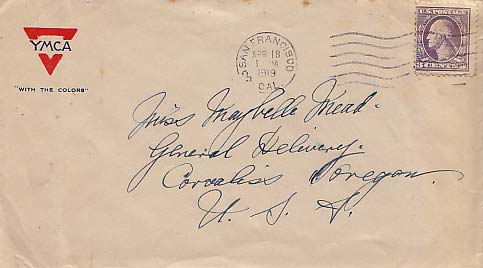 YMCA
"WITH THE COLORS"
SAN FRANCISCO
APR 18
1919
CAL.
U.S. POSTAGE
3 CENTS 3
Miss Maybelle Mead.
General Delivery.
Corvaliss Oregon.
U. S. A.